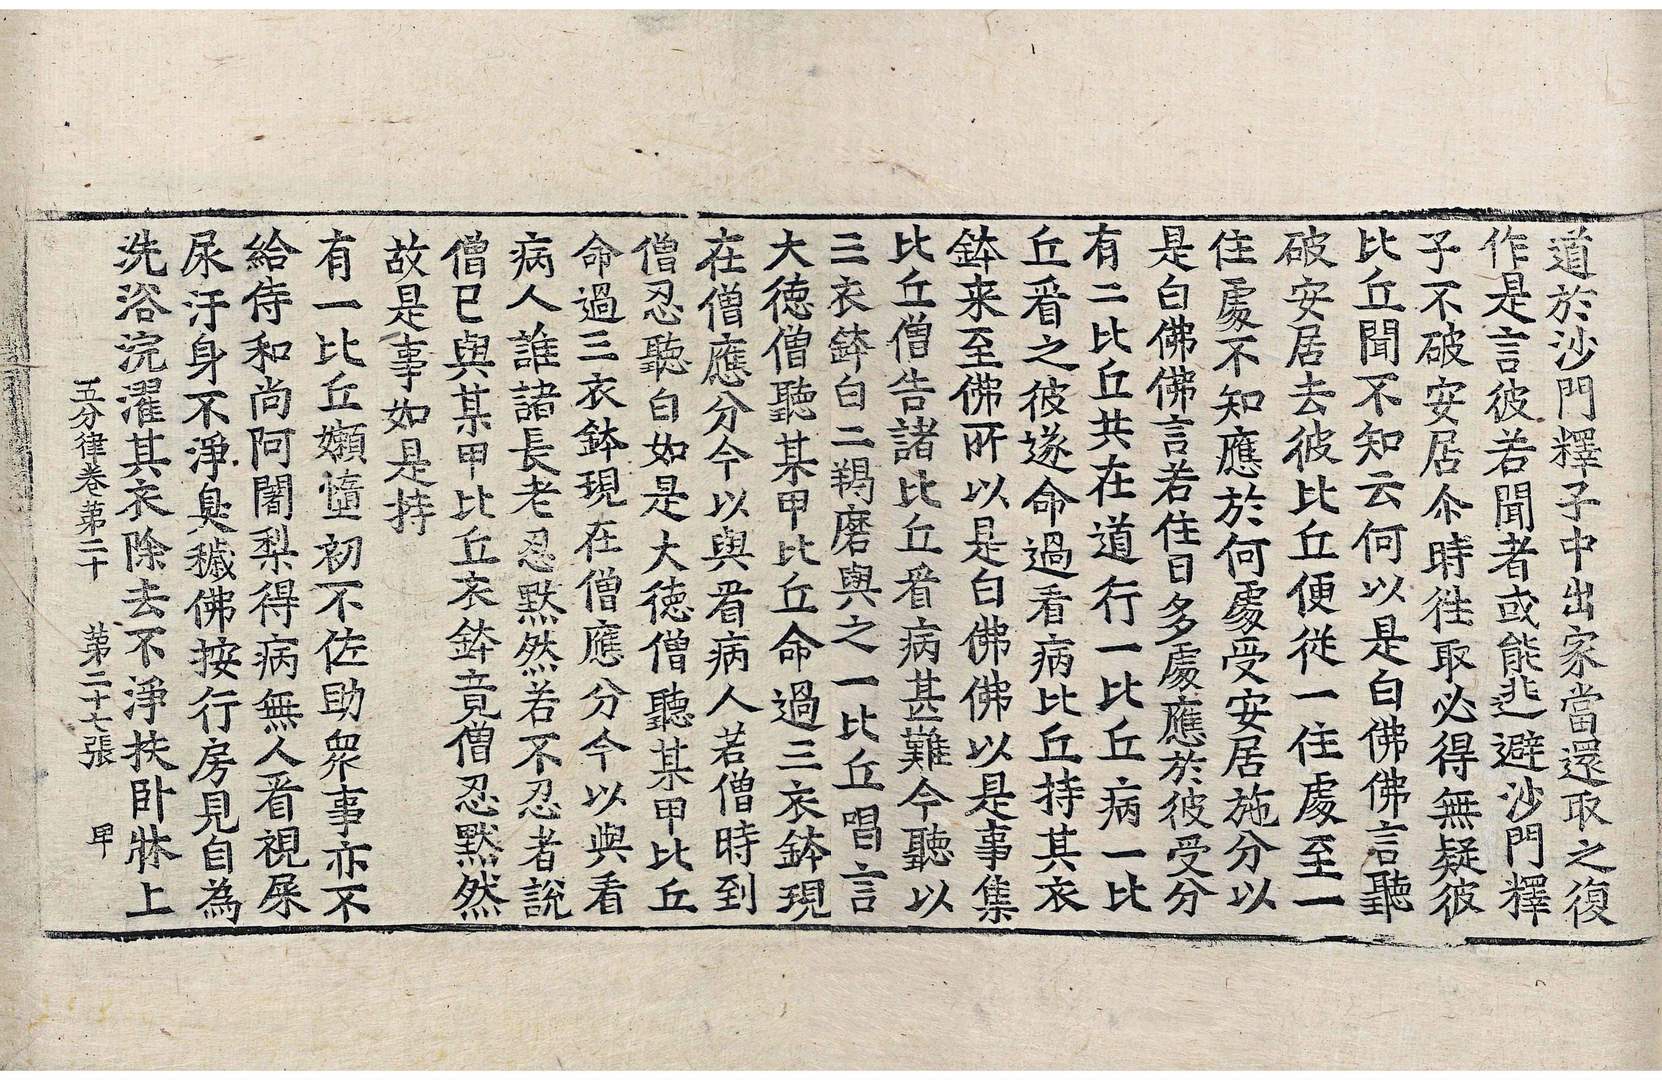 道於沙門釋子中出家當還取之復
作是言彼若聞者或能逃避沙門釋
子不破安居今時徃取必得無疑彼
比丘聞不知云何以是白佛佛言聽
破安居去彼比丘便從一住處至一
住處不知應於何處受安居施分以
是白佛佛言若住日多處應於彼受分
有二比丘共在道行一比丘病一比
丘看之彼遂命過看病比丘持其衣
鉢来至佛所以是白佛佛以是事集
比丘僧告諸比丘看病甚難今聽以
三衣鉢白二羯磨與之一比丘唱言
大徳僧聽某甲比丘命過三衣鉢現
在僧應分今以與看病人若僧時到
僧忍聽白如是大徳僧聽某甲比丘
命過三衣鉢現在僧應分今以與看
病人誰諸長老忍默然若不忍者說
僧已與某甲比丘衣鉢竟僧忍默然
故是事如是持
有一比丘嬾憜初不佐助衆事亦不
給侍和尚阿闍梨得病無人看視屎
尿汙身不淨臭穢佛按行房見自為
洗浴浣濯其衣除去不淨扶卧牀上
五分律卷第二十 第二十七張 卑